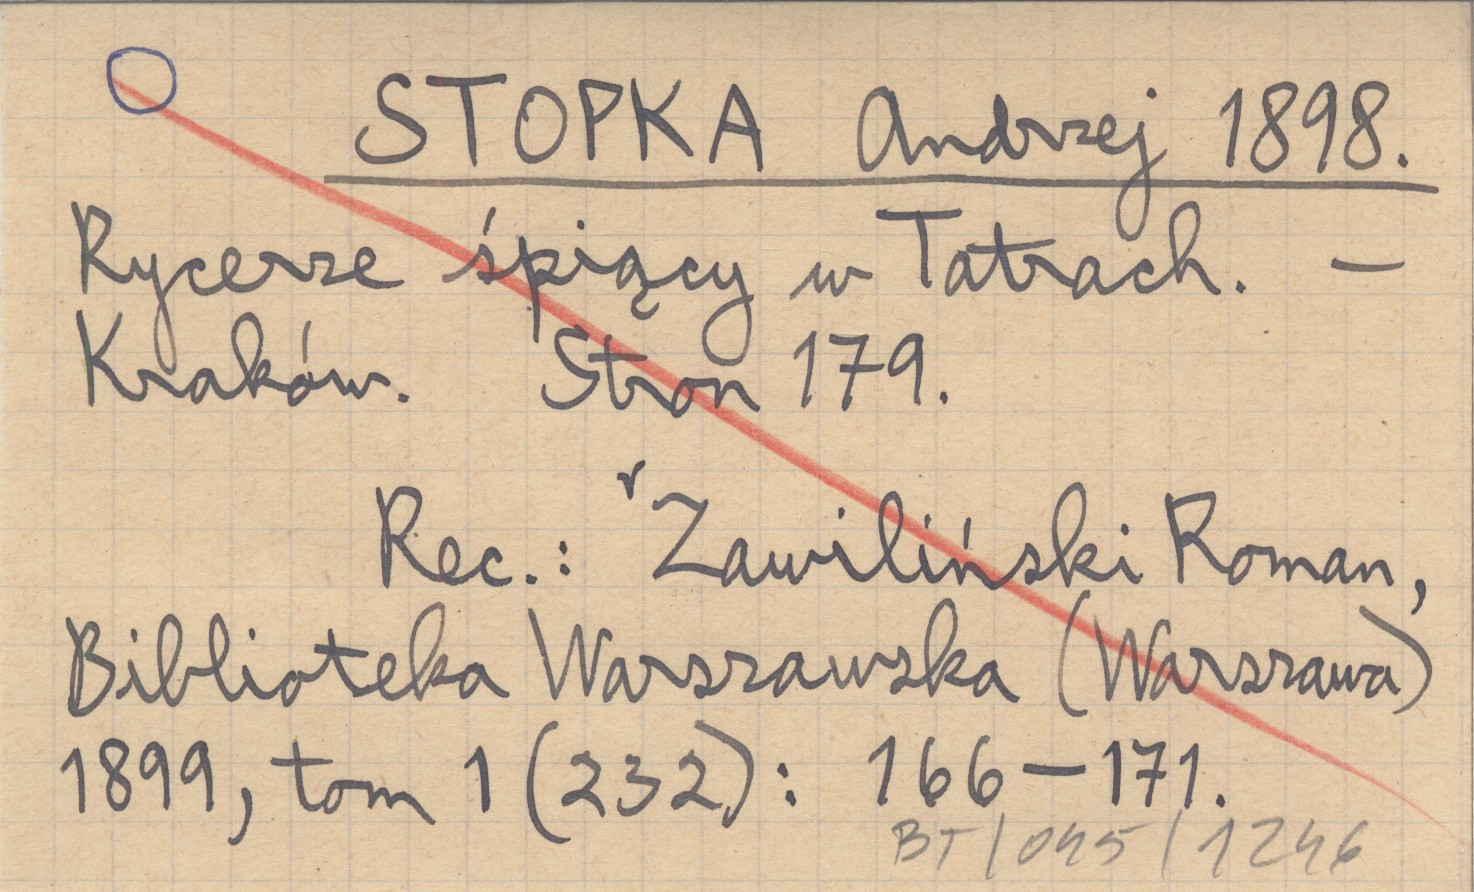 STOPKA Andrzej 1898.
Rycerze śpiący w Tatrach. —
Kraków. Stron 179.
Rec.: Zawiliński Roman,
Biblioteka Warszawska (Warszawa)
1899, tom 1 (232): 166-171.
BT/045/1246